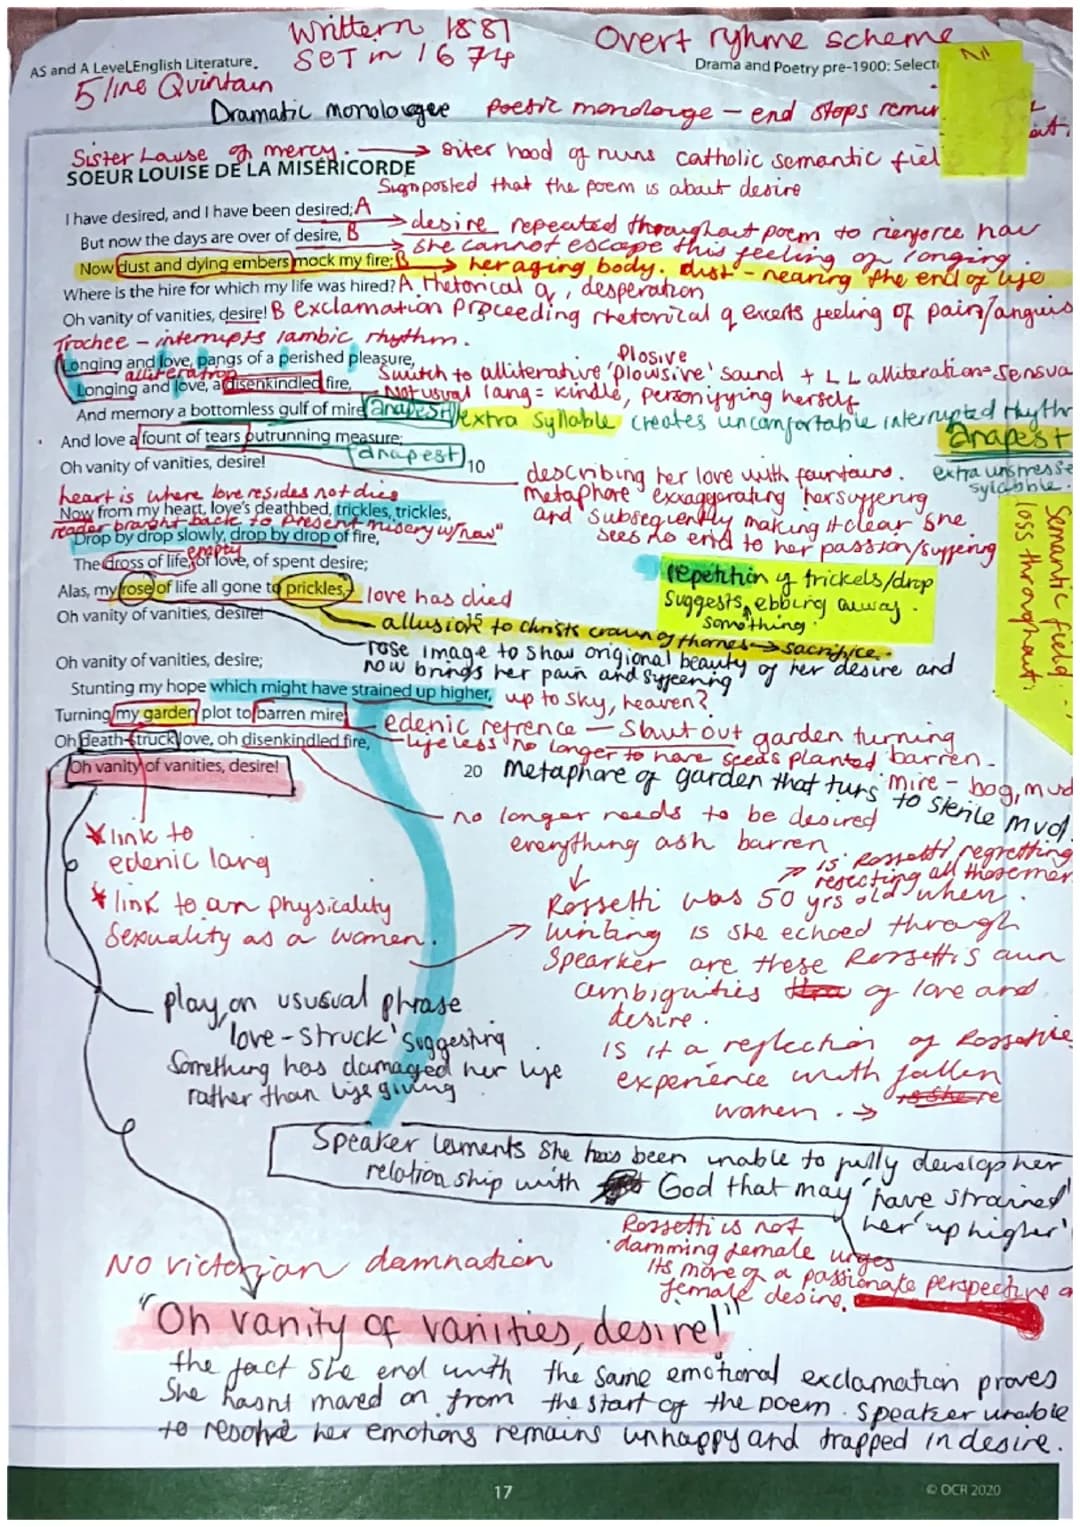 Writtern 1881
SET in 1674
Overt ryhme scheme
AS and A Level English Literature.
Drama and Poetry pre-1900: Select
5 line Quintain
Dramatic monolougue poetic monolouge – end stops remin
Sister Lause of mercy. → siter hood of nuns catholic semantic fiel
SOEUR LOUISE DE LA MISÉRICORDE
Signposted that the poem is about desire
I have desired, and I have been desired; A
→ desire repeated throughout poem to rienforce how
But now the days are over of desire, B
→ she cannot escape this feeling of longing.
Now dust and dying embers mock my fire; B → her aging body. dust – nearing the end of life
Where is the hire for which my life was hired? A rhetorical q, desperation
Oh vanity of vanities, desire! B Exclamation proceeding rhetorical q excerts feeling of pain/anguis
Trochee – interrupts iambic rhythm.
Longing and love, pangs of a perished pleasure,
Plosive
alliteration
Switch to alliterative 'plowsive' sound + L L alliteration = sensua
Longing and love, a disenkindled fire,
Not usual lang = kindle, personifying herself
And memory a bottomless gulf of mire, anapest extra syllable creates uncomfortable interrupted rhythm
And love a fount of tears outrunning measure;
anapest
Anapest
extra unstresse
syllable.
Oh vanity of vanities, desire! 10
describing her love with fountains.
metaphore exxaggerating her suffering
and subsequently making it clear she
sees no end to her passion/suffering
heart is where love resides not dies
Now from my heart, love's deathbed, trickles, trickles,
reader braught back to present misery w/"now"
Drop by drop slowly, drop by drop of fire,
empty
The dross of life, of love, of spent desire;
Alas, my rose of life all gone to prickles,– love has died
Oh vanity of vanities, desire! 15
repetition of trickels/drop
suggests ebbing away.
something
Semantic field
loss throughout.
allusion to christs crown of thornes → sacrifice.
rose image to show origional beauty of her desire and
now brings her pain and suffeering
Oh vanity of vanities, desire;
Stunting my hope which might have strained up higher, up to sky, heaven?
Turning my garden plot to barren mire;
edenic refrence – Shut out garden turning
Oh death-struck love, oh disenkindled fire,
lifeless no longer to have seeds planted barren.
Oh vanity of vanities, desire! 20
metaphore of garden that turs to sterile mud.
mire – bog, mud
no longer needs to be desired
everything ash barren
* link to
edenic lang
* link to an physicality
sexuality as a women.
→ is Rossetti regretting
rejecting all those men
Rossetti was 50 yrs old when
writing is she echoed through
Spearker are these Rossetti's own
ambiguities of love and
desire.
play on usual phrase
'love-struck' suggesting
something has damaged her life
rather than life giving
Is it a reflection of Rossetties
experience with fallen
women. →
Speaker laments she has been unable to fully develop her
relationship with God that may 'have strained'
her 'up higher'
Rossetti is not
damming female urges
its more of a passionate perspective o
female desire.
NO victorian damnation
"Oh vanity of vanities, desire!"
the fact she end with the same emotional exclamation proves
She hasnt moved on from the start of the poem. Speaker unable
to resolve her emotions remains unhappy and trapped in desire.
17
© OCR 2020